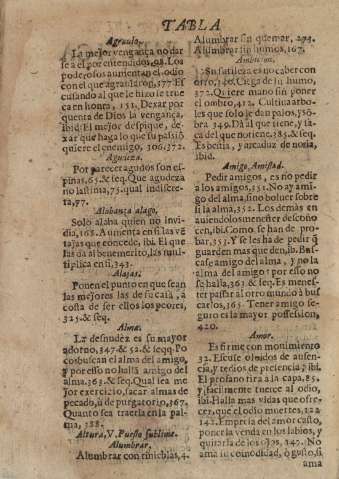 TABLA
Agrauio.
La mejor vengança no dar
se a el por entendidos, 98. Los
poderosos aumentan el odio
con el que agrauiaron, 377. Es
cusando al que le hizo se true
ca en honra, 151. Dexar por
quenta de Dios la vengança,
ibid. El mejor despique, de-
xar que haga lo que su passiō
quiere el enemigo, 306. 372.
Agudeza.
Por parecer agudos son es-
pinas, 65. & seq. Que agudeza
no lastima, 75. qual indiscre-
ta, 77.
Alabança alago.
Solo alaba quien no inui-
dia, 168. Aumenta en si las vē
tajas que concede, ibi. El que
las da al benemerito, las mul-
tiplica en si, 343.
Alajas.
Ponen el punto en que sean
las mejores las de su casa, a
costa de ser ellos los peores,
325. & seq.
Alma.
La desnudez es su mayor
adorno, 347. & 52. & seqq. Po
cos buscan el alma del amigo,
y por esso no hallā amigo del
alma. 363. & seq. Qual sea me
jor exercicio, sacar almas de
pecado, ù de purgatorio, 367.
Quanto sea traerla en la pal-
ma, 388.
Altura, V. Puesto sublime.
Alumbrar.
Alumbrar con tinieblas, 4.
Alumbrar sin quemar, 274.
Alumbrar sin humos, 167.
Ambicion.
Sin sutileza es no caber con
otro, 140. Ciega de su humo,
372. Quiere mano sin poner
el ombro, 412. Cultiua arbo-
les que solo le dan palos, y sō-
bra 349. Dà al que tiene, y sa-
ca del que no tiene, 385. & seq.
Es bestia, y arcaduz de noria,
ibid.
Amigo, Amistad.
Pedir amigos, es no pedir
a los amigos, 351. No ay ami-
go del alma, sino boluer sobre
si la alma, 352. Los demàs en
auiendolos menester descono
cen, ibi. Como se han de pro-
bar, 353. Y se les ha de pedir q̄
guarden mas que den, ib. Bus-
case amigo del alma, y no la
alma del amigo: por esso no
se halla, 363. & seq. Es menes-
ter passar al otro mundo à bus
carlos, 365. Tener amigo se-
guro es la mayor possession,
420.
Amor.
Es firme con mouimiento
32. Escuse oluidos de ausen-
cia, y tedios de presencia, ibi.
El profano tira a la capa, 85.
y facilmente tuerce al odio,
ibi. Halla mas vidas que ofre-
cer, que el odio muertes, 122
142. Empresa del amor casto,
poner la venda en los labios, y
quitarla de los ojos, 142. No
ama su comodidad, ò gusto, si
ama